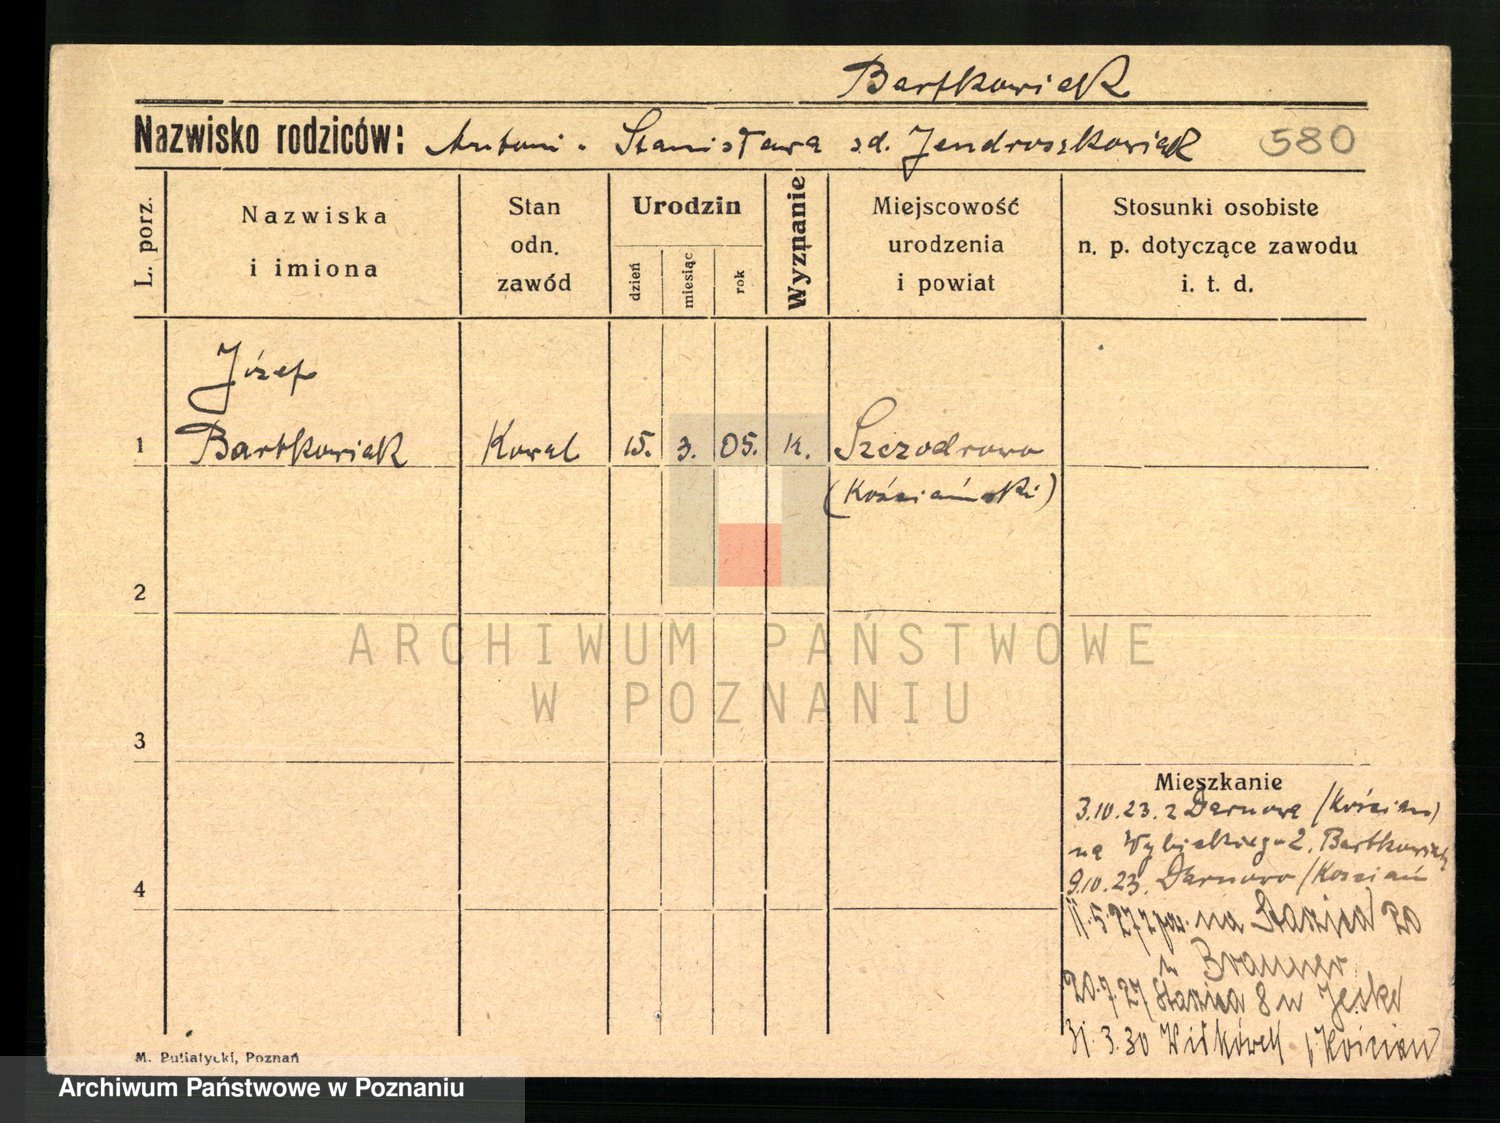 Bartkowiak
Nazwisko rodziców: Antoni . Stanisława zd. Jendroszkowiak 580
L. porz.
Nazwiska
i imiona
Stan
odn.
zawód
Urodzin
dzień
miesiąc
rok
Wyznanie
Miejscowość
urodzenia
i powiat
Stosunki osobiste
n. p. dotyczące zawodu
i. t. d.
Józef
1 Bartkowiak Kowal 15. 3. 05. k. Szczodrowo
(Kościański)
2
ARCHIWUM PAŃSTWOWE
W POZNANIU
3
Mieszkanie
3.10.23. z Darnowa /Kościan)
na Wybickiego 2. Bartkowiak
4
9.10.23. Darnowo /Kościan
11.5.27 na 20
u Brauner
20.7.27 8 u Jeske
31.3.30 /Kościan
M. Putiatycki, Poznań
Archiwum Państwowe w Poznaniu